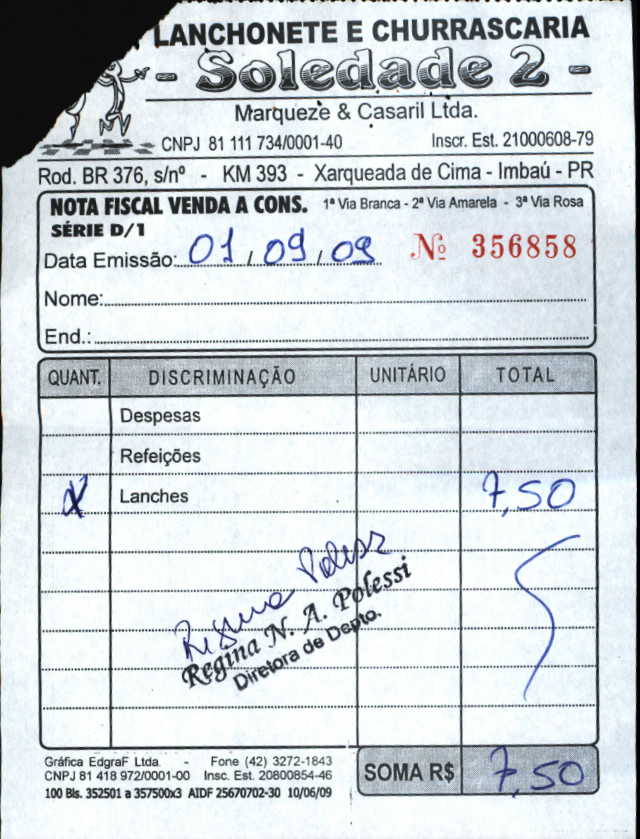 LANCHONETE E CHURRASCARIA
- Soledade 2 -
Marqueze & Casaril Ltda.
CNPJ 81 111 734/0001-40 Inscr. Est. 21000608-79
Rod. BR 376, s/nº - KM 393 - Xarqueada de Cima - Imbaú - PR
NOTA FISCAL VENDA A CONS. 1ª Via Branca - 2ª Via Amarela - 3ª Via Rosa
SÉRIE D/1
Data Emissão: 01 / 09 / 09 Nº 356858
Nome:
End.:
QUANT. DISCRIMINAÇÃO UNITÁRIO TOTAL
Despesas
Refeições
Lanches 7,50
Regina Polessi
Regina N. A. Polessi
Diretora de Depto.
Gráfica EdgraF Ltda. - Fone (42) 3272-1843
CNPJ 81 418 972/0001-00 Insc. Est. 20800854-46
100 Bls. 352501 a 357500x3 AIDF 25670702-30 10/06/09
SOMA R$ 7,50